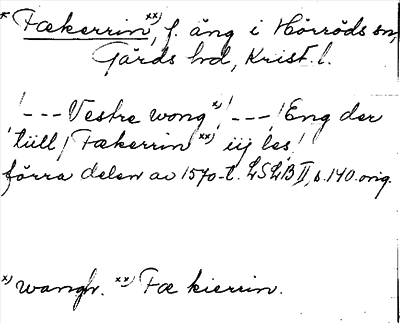 * Fækerrin xx), f. äng i Hörröds sn,
Gärds hd, Krist. l.
! - - - Vestre wong x)! - - - ! Eng der
tüll / Fækerrin xx) iij les!
förra delen av 1570-t. LSLB II, s. 140. orig.
x) wangh. xx) Fæ kierrin.